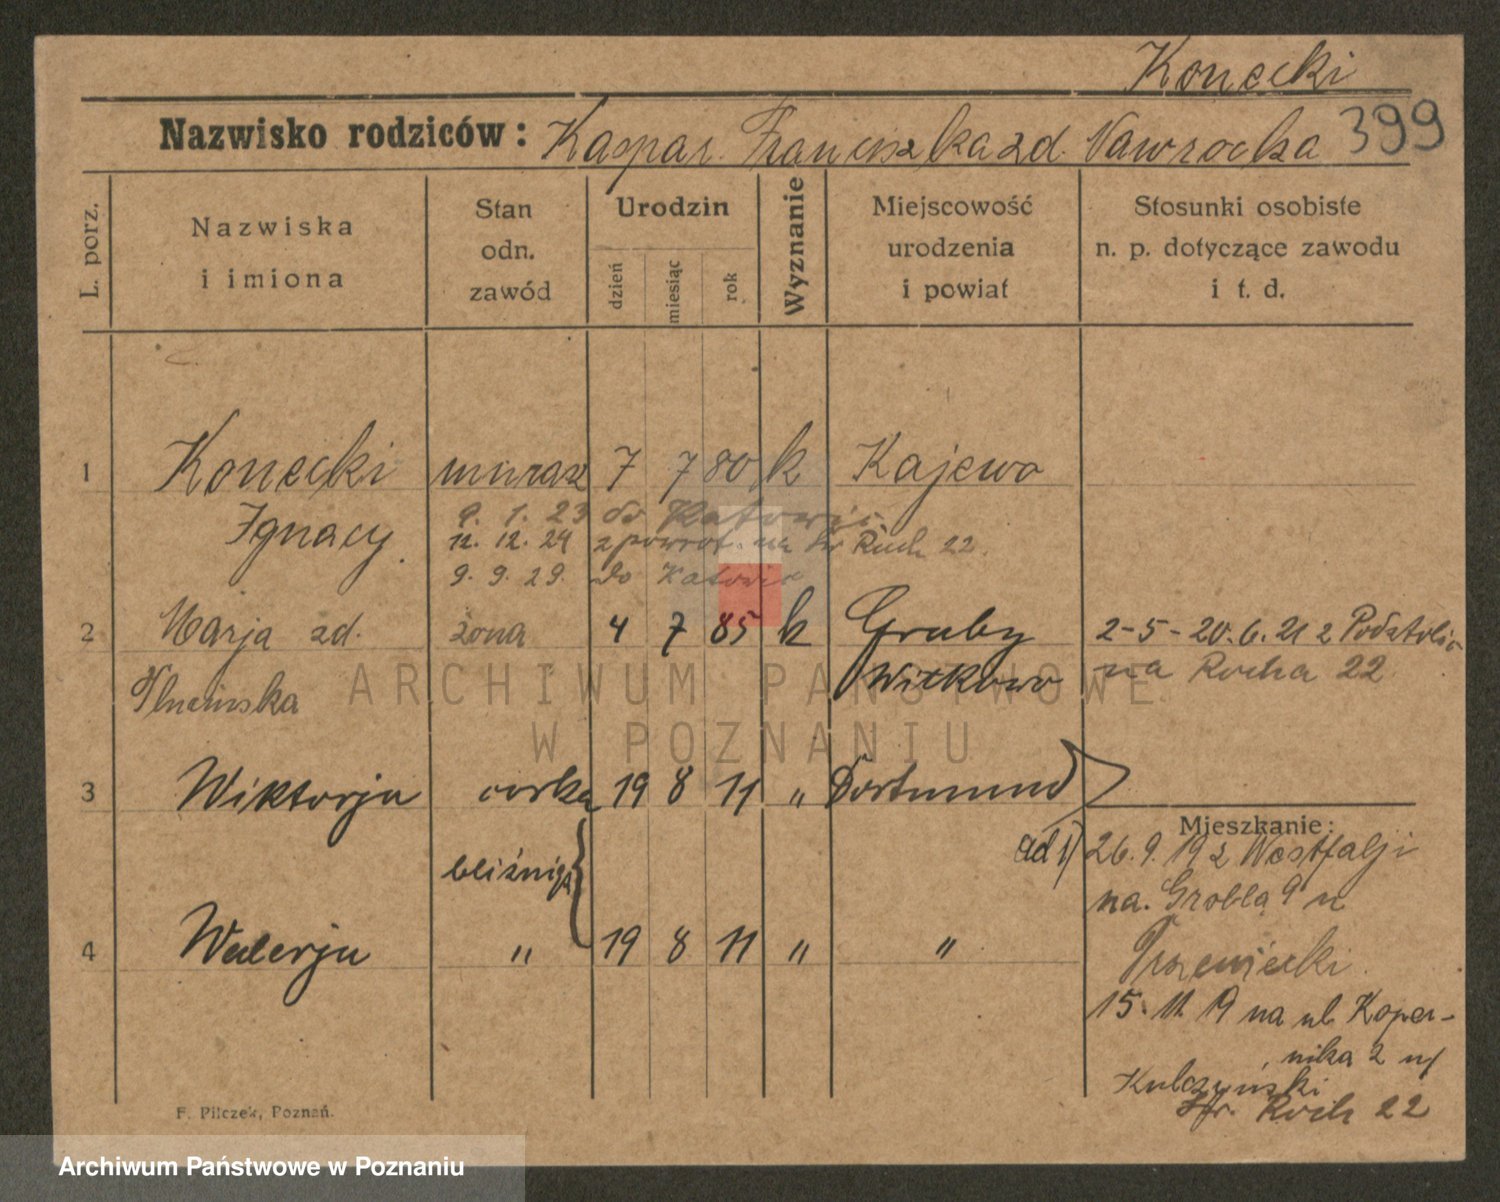 Konecki
Nazwisko rodziców: Kaspar. Franciszka zd. Nawrocka 399
L. porz.
Nazwiska
i imiona
Stan
odn.
zawód
Urodzin
dzień
miesiąc
rok
Wyznanie
Miejscowość
urodzenia
i powiat
Stosunki osobiste
n. p. dotyczące zawodu
i t. d.
1 Konecki murarz 7 7 80 k Kajewo
Ignacy.
9. 1. 23 do Katowic
12. 12. 24 z powrot. na Św Roch 22.
9. 9. 29. do Katowic
2 Marja zd. żona 4 7 85 k Gruby 2-5-20.6.21 z
na Rocha 22
Witkowo
3 Wiktorja córka 19 8 11 " Dortmund
bliźnięta
4 Walerja " 19 8 11 " "
Mieszkanie:
ad 1) 26.9.19 z Westfalji
na. Groblą 9 u
15. 11. 19 na ul Koper-
nika 2 u/
Kulczyński
Św. Roch 22
F. Pilczek, Poznań.
ARCHIWUM PAŃSTWOWE
W POZNANIU
Archiwum Państwowe w Poznaniu